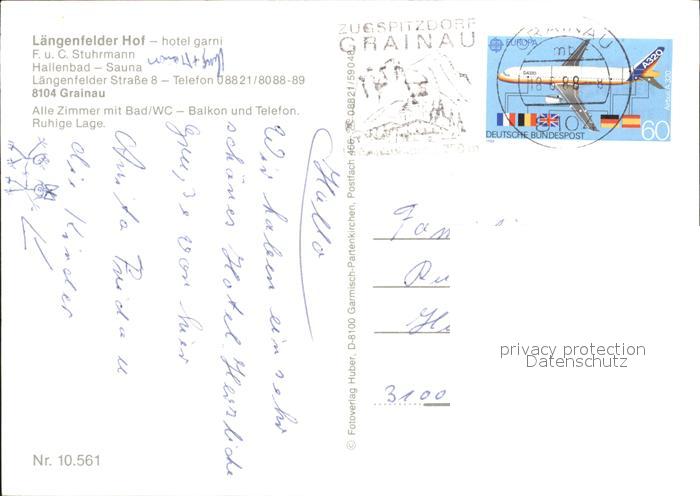 Längenfelder Hof – hotel garni
F. u. C. Stuhrmann
Hallenbad – Sauna
Längenfelder Straße 8 – Telefon 08821/8088-89
8104 Grainau
Alle Zimmer mit Bad/WC – Balkon und Telefon.
Ruhige Lage.
Hallo
Wir haben ein sehr
schönes Hotel. Herzliche
Grüße von hier
Anita
die Kinder
Nr. 10.561
© Fotoverlag Huber, D-8100 Garmisch-Partenkirchen, Postfach 466, ☎ 08821/59048
ZUGSPITZDORF
GRAINAU
GRAINAU
8104
EUROPA
A320
Airbus A 320
DEUTSCHE BUNDESPOST
60
Fam
3100
privacy protection
Datenschutz